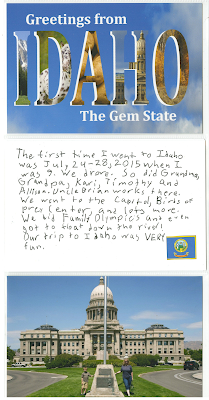 Greetings from
IDAHO
The Gem State
The first time I went to Idaho
was July 24-28, 2015 when I
was 9. We drove. So did Grandma,
Grandpa, Kari, Timothy and
Allison. Uncle Brian works there.
We went to the Capitol, Birds of
prey Center, and lots more.
We did Family Olympics and even
got to float down the river!
Our trip to Idaho was VERY
fun.